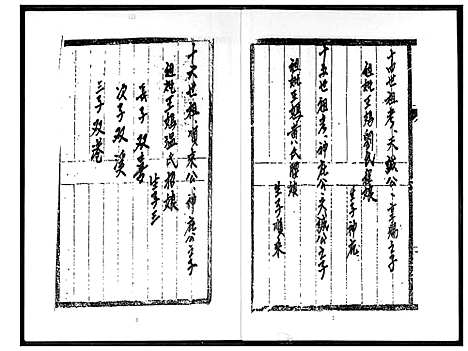 十四世祖考天誠公王賜之子
祖妣王媽劉氏孺娘
生子神庇
十五世祖考神庇公天誠公之子
祖妣王媽前氏孺娘
生子順來
十六世祖順來公神庇公之子
祖妣王媽溫氏招娘
生子三
長子双喜
次子双溪
三子双蒼